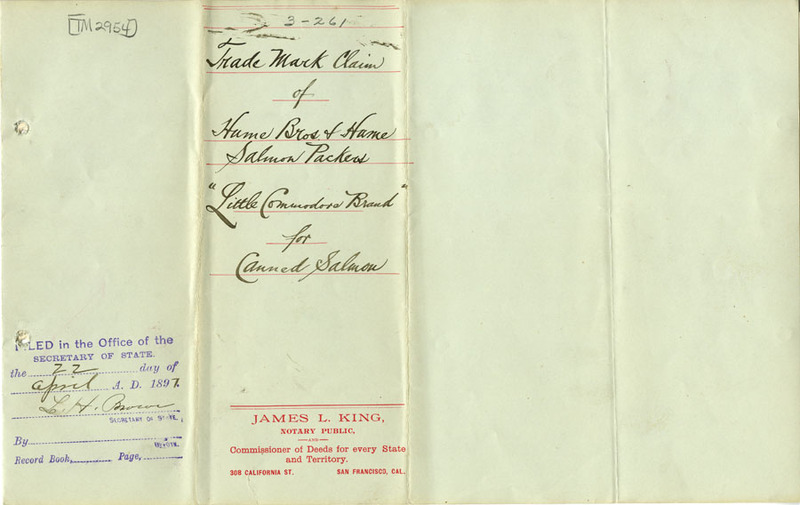 [TM2954]
FILED in the Office of the
SECRETARY OF STATE.
the 22 day of
April A. D. 1897.
L. H. Brown
SECRETARY OF STATE.
By
DEPUTY.
Record Book, Page,
3-261
Trade Mark Claim
of
Hume Bros & Hume
Salmon Packers
"Little Commodore Brand"
for
Canned Salmon
JAMES L. KING,
NOTARY PUBLIC,
—AND—
Commissioner of Deeds for every State
and Territory.
308 CALIFORNIA ST. SAN FRANCISCO, CAL.